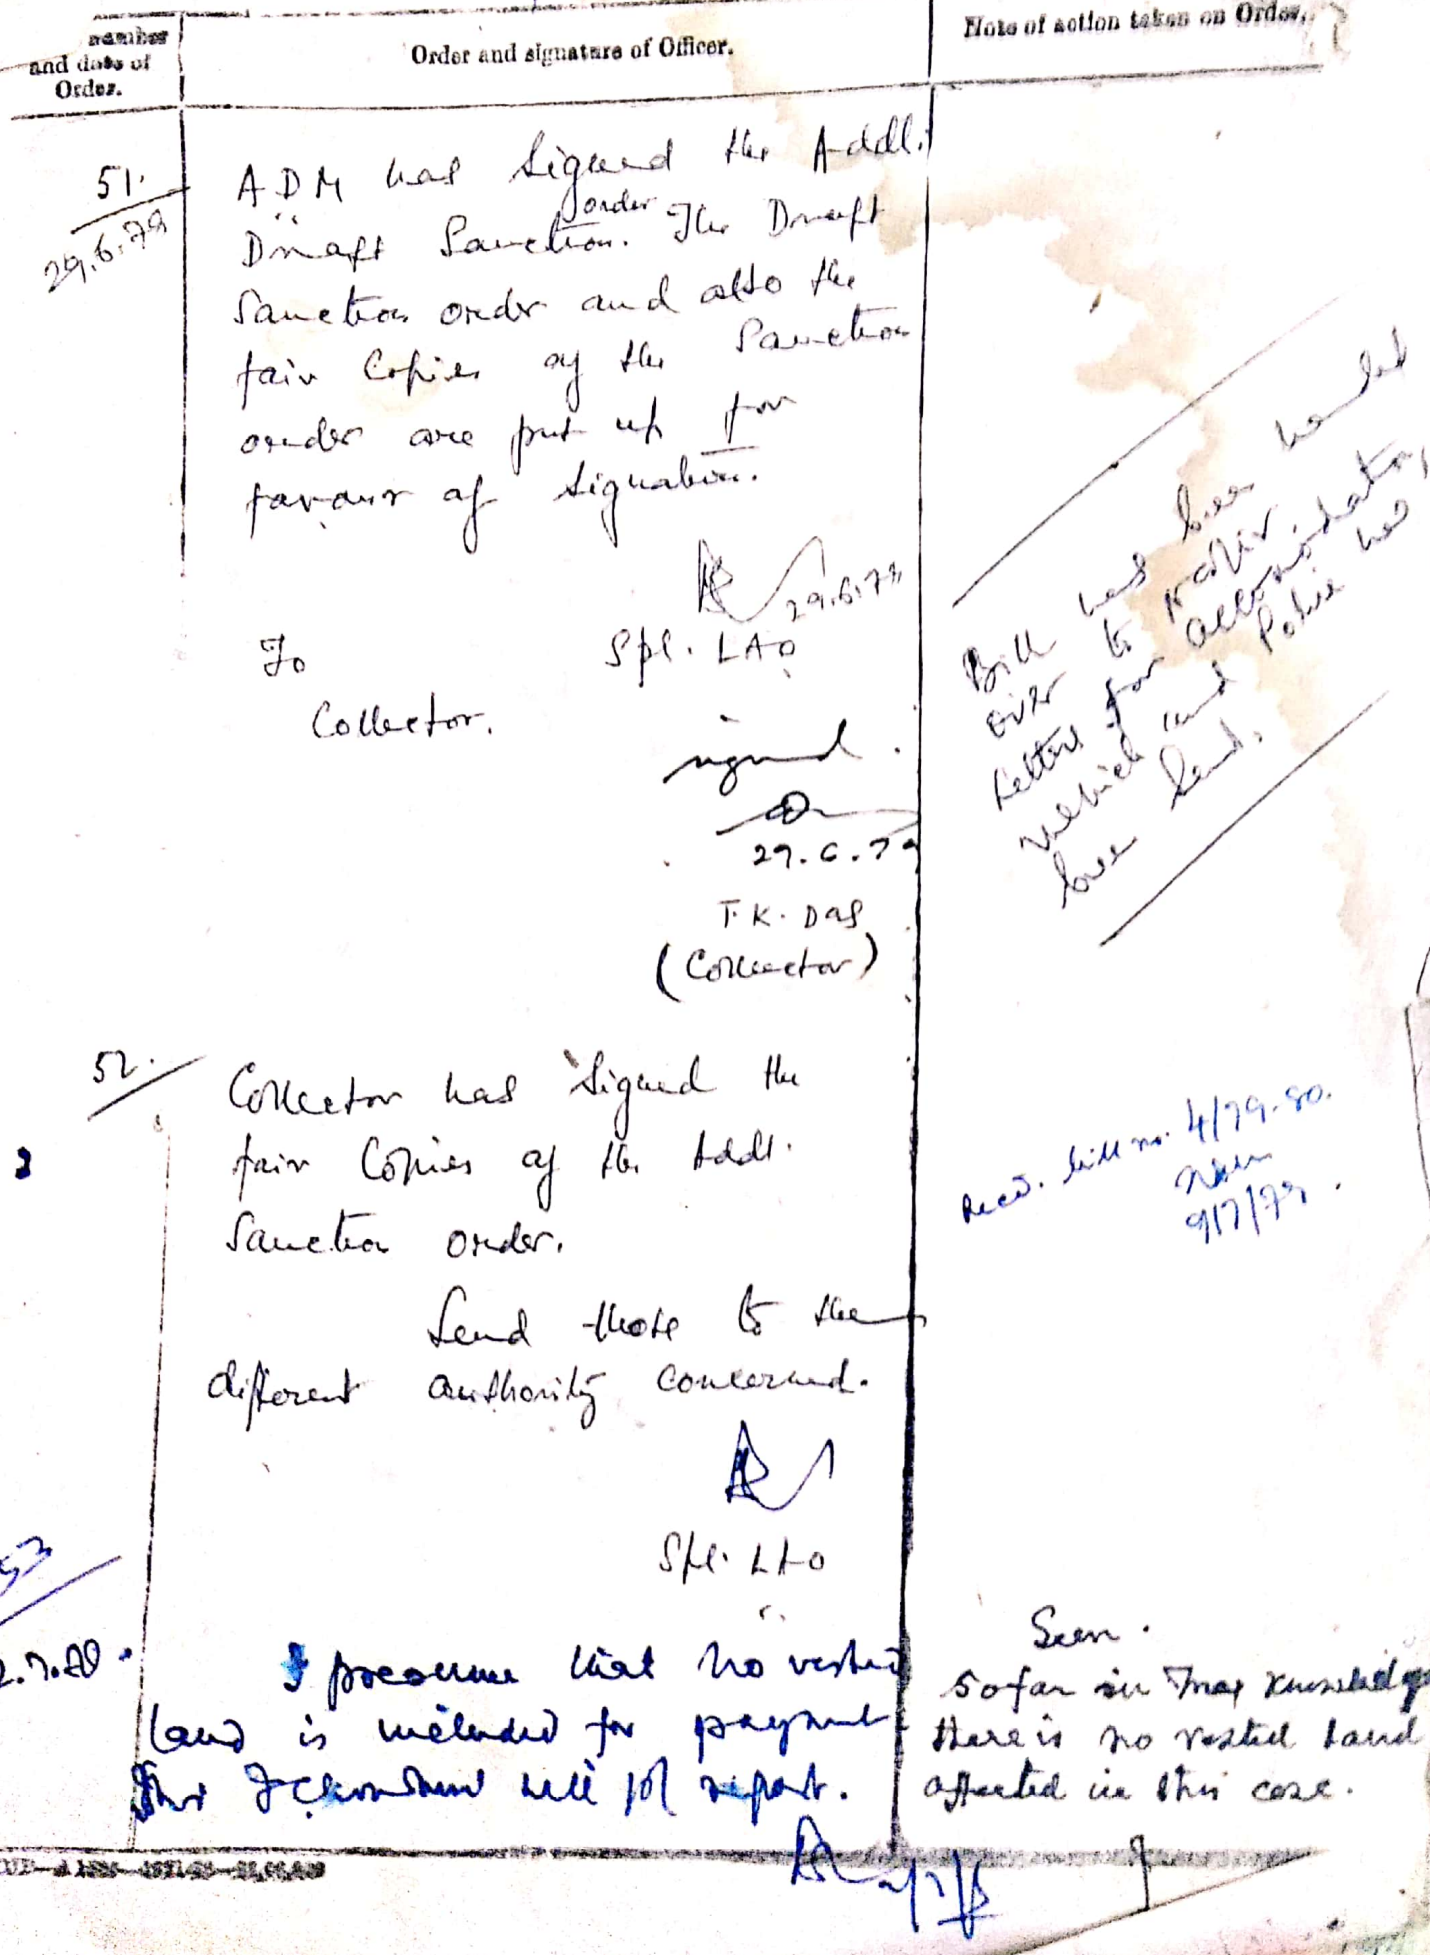 number
and date of
Order.
Order and signature of Officer.
Note of action taken on Order.
51.
29.6.79
ADM has signed the Addl.
order
Draft Sanction. The Draft
Sanction order and also the
fair Copies of the Sanction
order are put up for
favour of signature.
29.6.79
Spl. LAO
To
Collector.
signed.
29.6.79
T.K. Das
(Collector)
Bill has been handed
over to
Letters for accomodation,
vehicle and Police has
been send.
52.
Collector has signed the
fair Copies of the Addl.
Sanction order.
Send those to the
different authority concerned.
Spl. LAO
Recd. bill no. 4/79-80.
9/7/79.
53
2.7.
I presume that no vested
land is included for payment
will pl report.
Seen.
So far in my knowledge
there is no vested land
affected in this case.